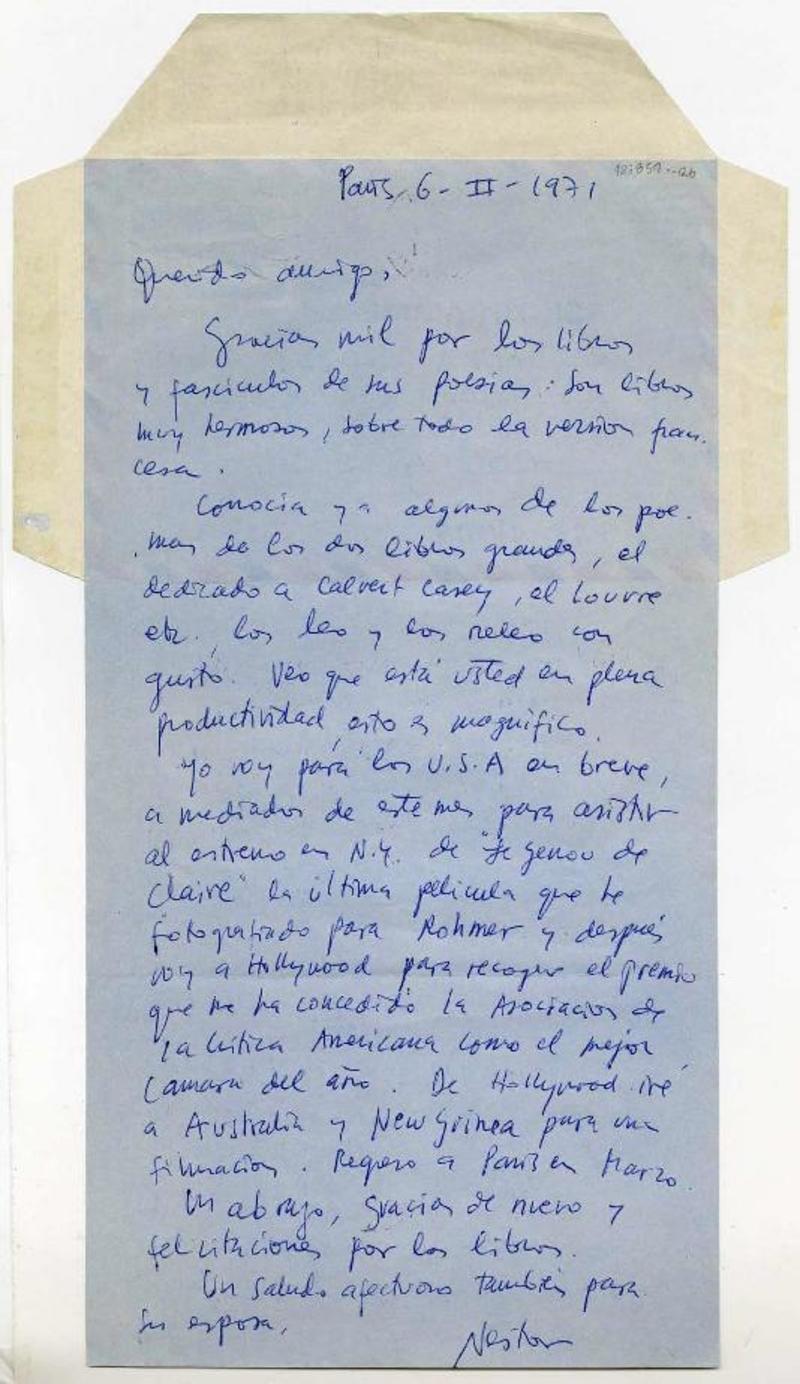 París, 6 - II - 1971
Querido amigo,
Gracias mil por los libros
y fasciculos de sus poesias: Son libros
muy hermosos, sobre todo la version fran-
cesa.
Conocia ya algunos de los poe-
mas de los dos libros grandes, el
dedicado a Calvert Casey, el Louvre
etc., los leo y los releo con
gusto. Veo que está usted en plena
productividad, esto es magnifico.
Yo voy para los U.S.A en breve,
a mediados de este mes para asistir
al estreno en N.Y. de "Le genou de
Claire" la última pelicula que he
fotografiado para Rohmer y después
voy a Hollywood para recoger el premio
que me ha concedido la Asociacion de
la Critica Americana como el mejor
camara del año. De Hollywood iré
a Australia y New Guinea para una
filmacion. Regreso a Paris en Marzo.
Un abrazo, gracias de nuevo y
felicitaciones por los libros.
Un saludo afectuoso también para
su esposa,
Nestor